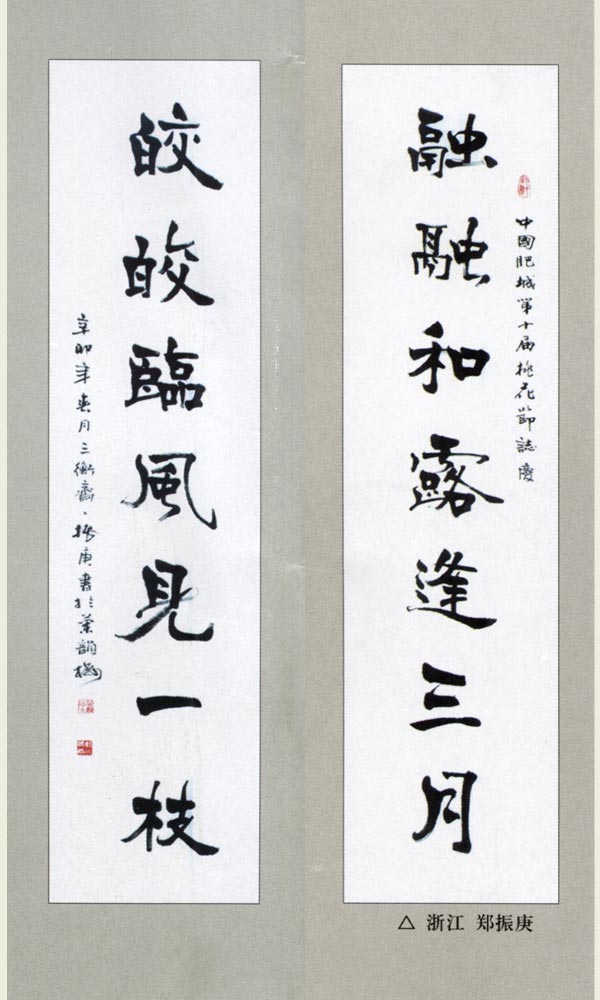 融融和露逢三月
中國肥城第十届桃花節誌慶
皎皎臨風見一枝
辛卯年春月三衢齋振庚書於
△ 浙江 郑振庚